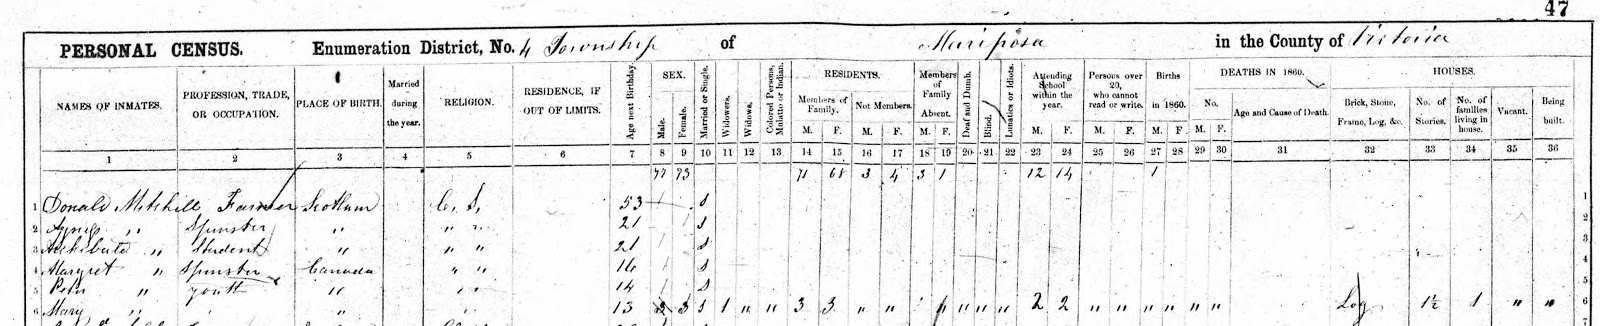 47
PERSONAL CENSUS. Enumeration District, No. 4 Township of Mariposa in the County of Victoria
NAMES OF INMATES. PROFESSION, TRADE, OR OCCUPATION. PLACE OF BIRTH. Married during the year. RELIGION. RESIDENCE, IF OUT OF LIMITS. Age next Birthday. SEX. Male. Female. Married or Single. Widowers. Widows. Colored Persons, Mulatto or Indian. RESIDENTS. Members of Family. Not Members. M. F. M. F. Members of Family Absent. M. F. Deaf and Dumb. Blind. Lunatics or Idiots. Attending School within the year. M. F. Persons over 20, who cannot read or write. M. F. Births in 1860. M. F. DEATHS IN 1860. No. M. F. Age and Cause of Death. HOUSES. Brick, Stone, Frame, Log, &c. No. of Stories. No. of families living in house. Vacant. Being built.
1 2 3 4 5 6 7 8 9 10 11 12 13 14 15 16 17 18 19 20 21 22 23 24 25 26 27 28 29 30 31 32 33 34 35 36
77 73 71 68 3 4 3 1 12 14 1
1 Donald Mitchill Farmer Scotland C. S. 53 1 S 1
2 Agnes " Spinster " " " 21 1 S 2
3 " Student " " " 21 1 S 3
4 Margret " Spinster Canada " " 16 1 S 4
5 Peter " youth " " " 14 1 S 5
6 Mary " " " 13 3 3 S 1 " " 3 3 " " " " " 2 2 " " " " " " Log 1½ 1 " " 6
7